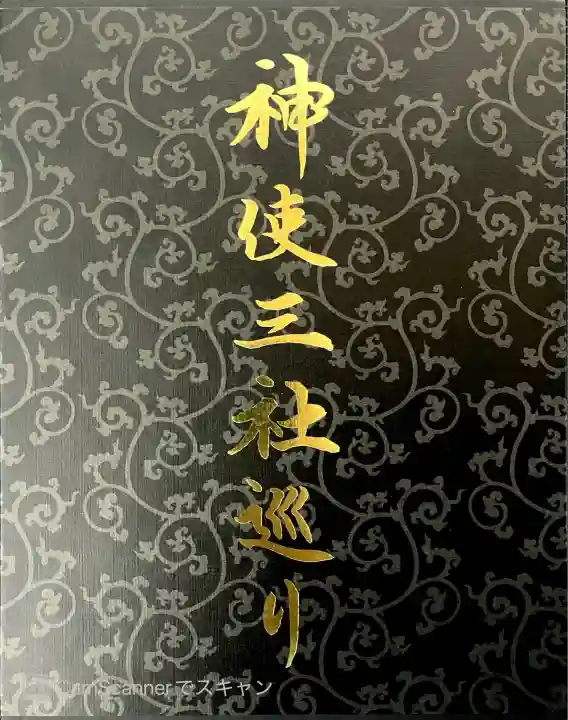 神使三社巡り
CamScannerでスキャン